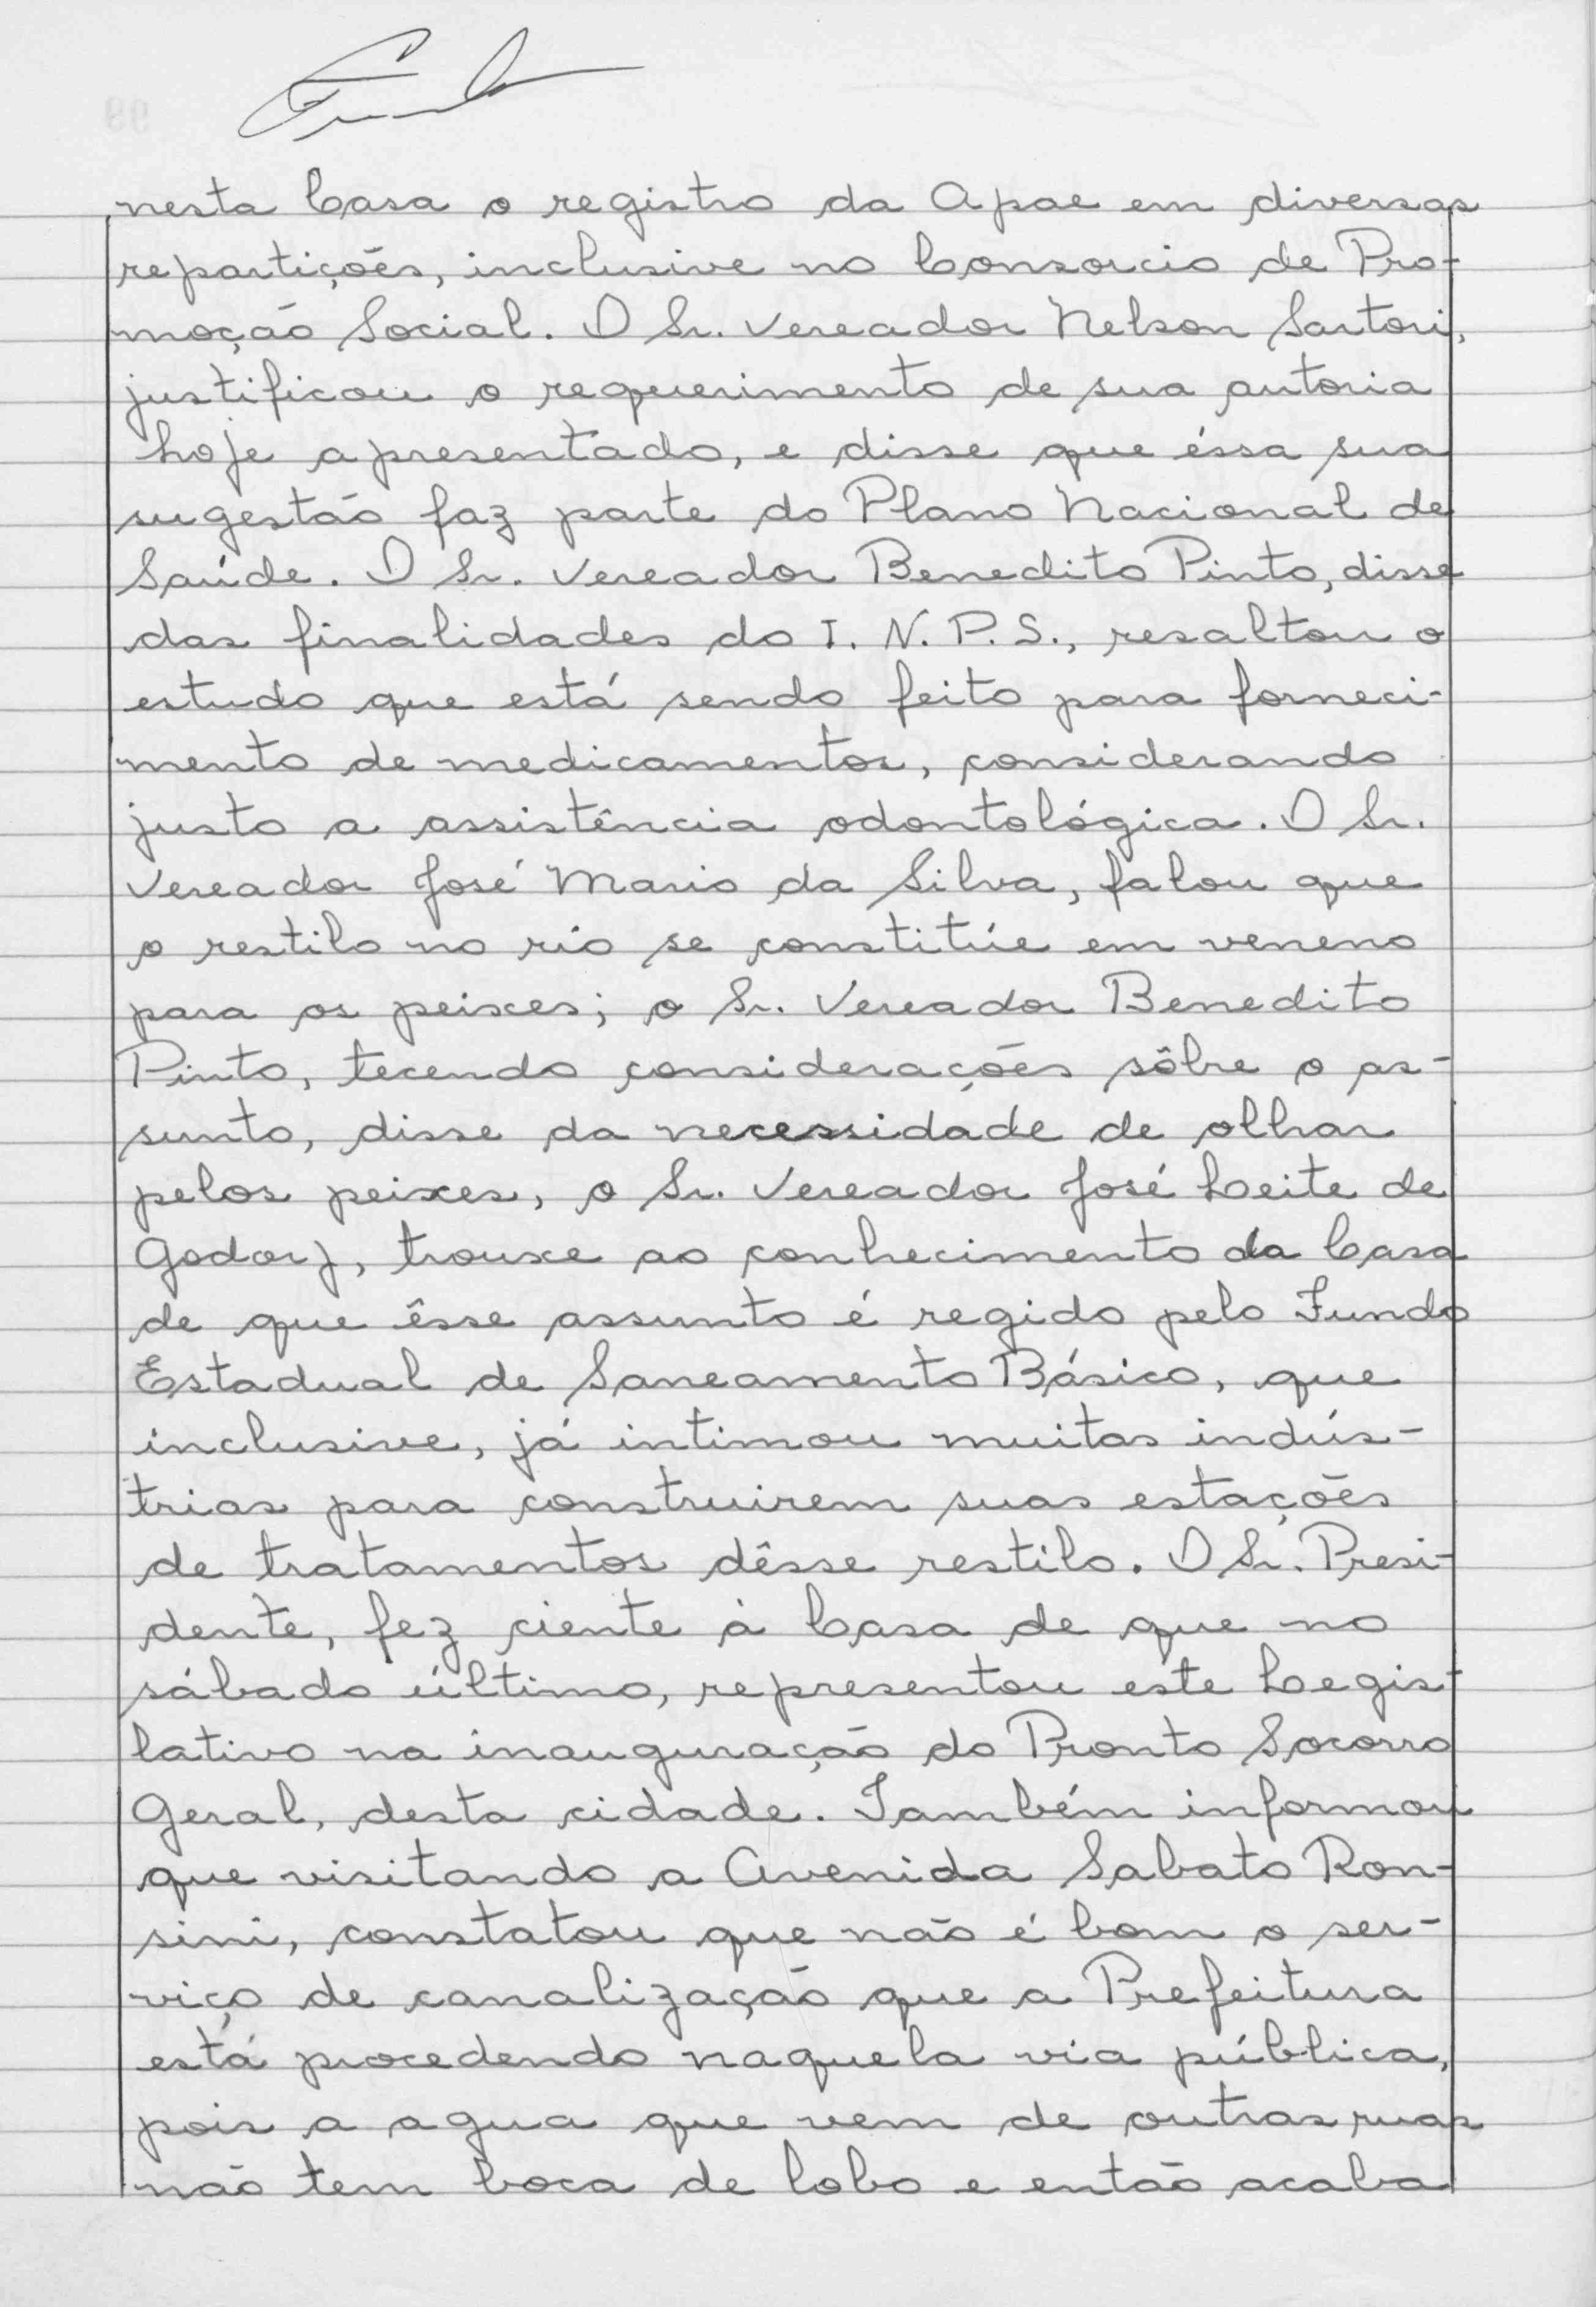 nesta Casa o registro da Apae em diversas
repartições, inclusive no Consorcio de Pro-
moção Social. O Sr. Vereador Nelson Sartori,
justificou o requerimento de sua autoria
hoje apresentado, e disse que éssa sua
sugestão faz parte do Plano Nacional de
Saúde. O Sr. Vereador Benedito Pinto, disse
das finalidades do I. N. P. S., resaltou o
estudo que está sendo feito para forneci-
mento de medicamentos, considerando
justo a assistência odontológica. O Sr.
Vereador José Mario da Silva, falou que
o restilo no rio se constitúe em veneno
para os peixes; o Sr. Vereador Benedito
Pinto, tecendo considerações sôbre o as-
sunto, disse da necessidade de olhar
pelos peixes, o Sr. Vereador José Leite de
Godoy, trouxe ao conhecimento da Casa
de que êsse assunto é regido pelo Fundo
Estadual de Saneamento Básico, que
inclusive, já intimou muitas indús-
trias para construirem suas estações
de tratamentos dêsse restilo. O Sr. Presi-
dente, fez ciente à Casa de que no
sábado último, representou este Legis-
lativo na inauguração do Pronto Socorro
Geral, desta cidade. Também informou
que visitando a Avenida Sabato Ron-
sini, constatou que não é bom o ser-
viço de canalização que a Prefeitura
está procedendo naquela via pública,
pois a agua que vem de outras ruas
não tem boca de lobo e então acaba